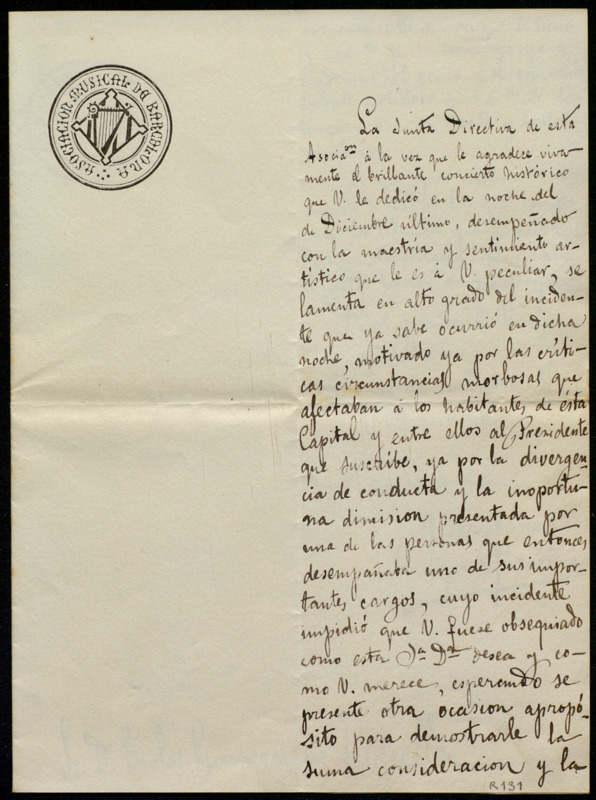 ASOCIACION MUSICAL DE BARCELONA
La Junta Directiva de esta
Asocia.on á la vez que le agradece viva-
mente el brillante concierto histórico
que V. le dedicó en la noche del
de Diciembre último, desempeñado
con la maestría y sentimiento ar-
tistico que le es á V. peculiar, se
lamenta en alto grado del inciden-
te que ya sabe ocurrió en dicha
noche, motivado ya por las críti-
cas circunstancias morbosas que
afectaban á los habitantes de ésta
Capital y entre ellos al Presidente
que suscribe, ya por la divergen-
cia de conducta y la inoportu-
na dimision presentada por
una de las personas que entonces
desempañaba uno de sus impor-
tantes cargos, cuyo incidente
impidió que V. fuese obsequiado
como esta Ja Da desea y co-
mo V. merece, esperando se
presente otra ocasion apropó-
sito para demostrarle la
suma consideracion y la
R131